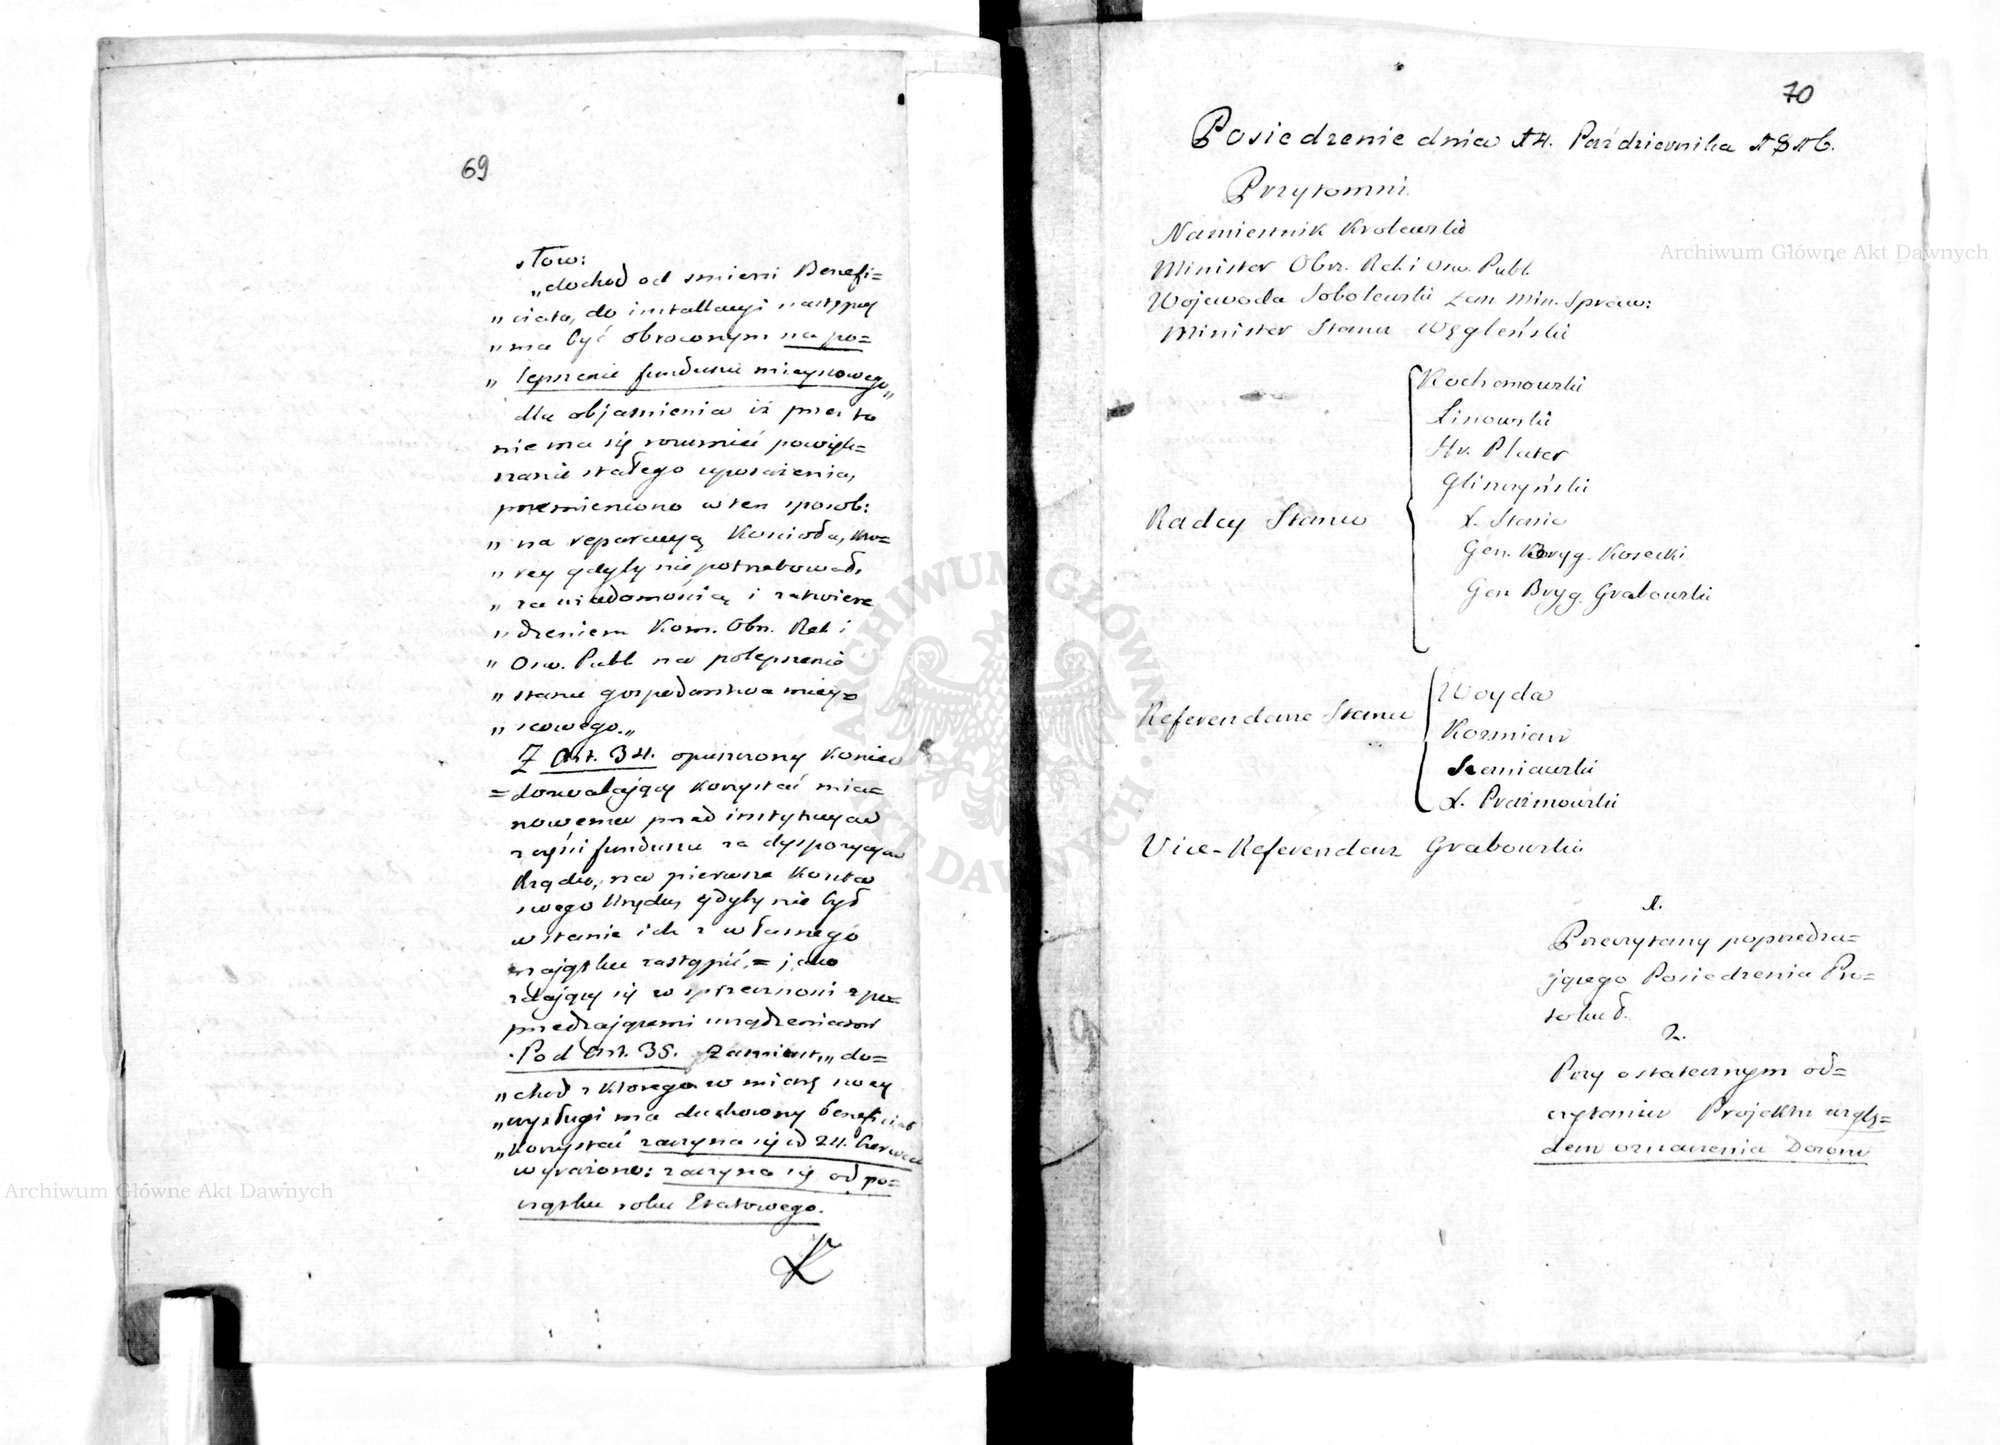 69
słow:
„dochod od smierci Benefi=
„ciata, do installacyi następcy
„ma być obroconym na po=
„lepszenie funduszu mieyscowego„
dla objasnienia iż przez to
nie ma się rozumieć powięk=
szanie stałego uposażenia,
przemieniono w ten sposob:
„na reparacyą Kościoła, kto=
„rey gdyby nie potrzebował,
„za wiadomością i zatwier=
„dzeniem Kom. Obrz. Rel. i
„Osw. Publ na polepszenie
„stanu gospodarstwa miey=
„scowego.„
Z Art. 34. opuszczony Koniec
=dozwalający korzystać mia=
nowemu przed instytucyą
części funduszu za dyspozycyą
Rządu, na pierwsze koszta
swego Urzędu, gdyby nie był
w stanie ich z własnego
majątku zastąpić,= jako
zdający się w sprzeczności z po=
przedzającemi urządzeniami
Pod Art. 35. zamiast „do=
„chod z ktorego w miarę swey
„wysługi ma duchowny beneficiat
„korzystać zaczyna się d 24. Czerwca
wyrażono: zaczyna się od po=
czątku roku Etatowego.
70
Posiedzenie dnia 14. Października 1816.
Przytomni.
Namiestnik Krolewski
Minister Obrz. Rel. i Osw. Publ.
Wojewoda Sobolewski Zas. Min. Spraw:
Minister Stanu Węgleński
Radcy Stanu
Kochanowski
Linowski
Hr. Plater
Gliszczyński
X. Stasic
Gen. Bryg. Kosecki
Gen Bryg. Grabowski
Referendarze Stanu
Woyda
Kozmian
Szaniawski
X. Prażmowski
Vice-Referendarz Grabowski
1.
Przeczytany poprzedza=
jącego Posiedzenia Pro=
tokuł.
2.
Przy ostatecznym od=
czytaniu Projektu wzglę=
dem oznaczenia Dozoru
Archiwum Główne Akt Dawnych
Archiwum Główne Akt Dawnych
ARCHIWUM GŁÓWNE AKT DAWNYCH
19